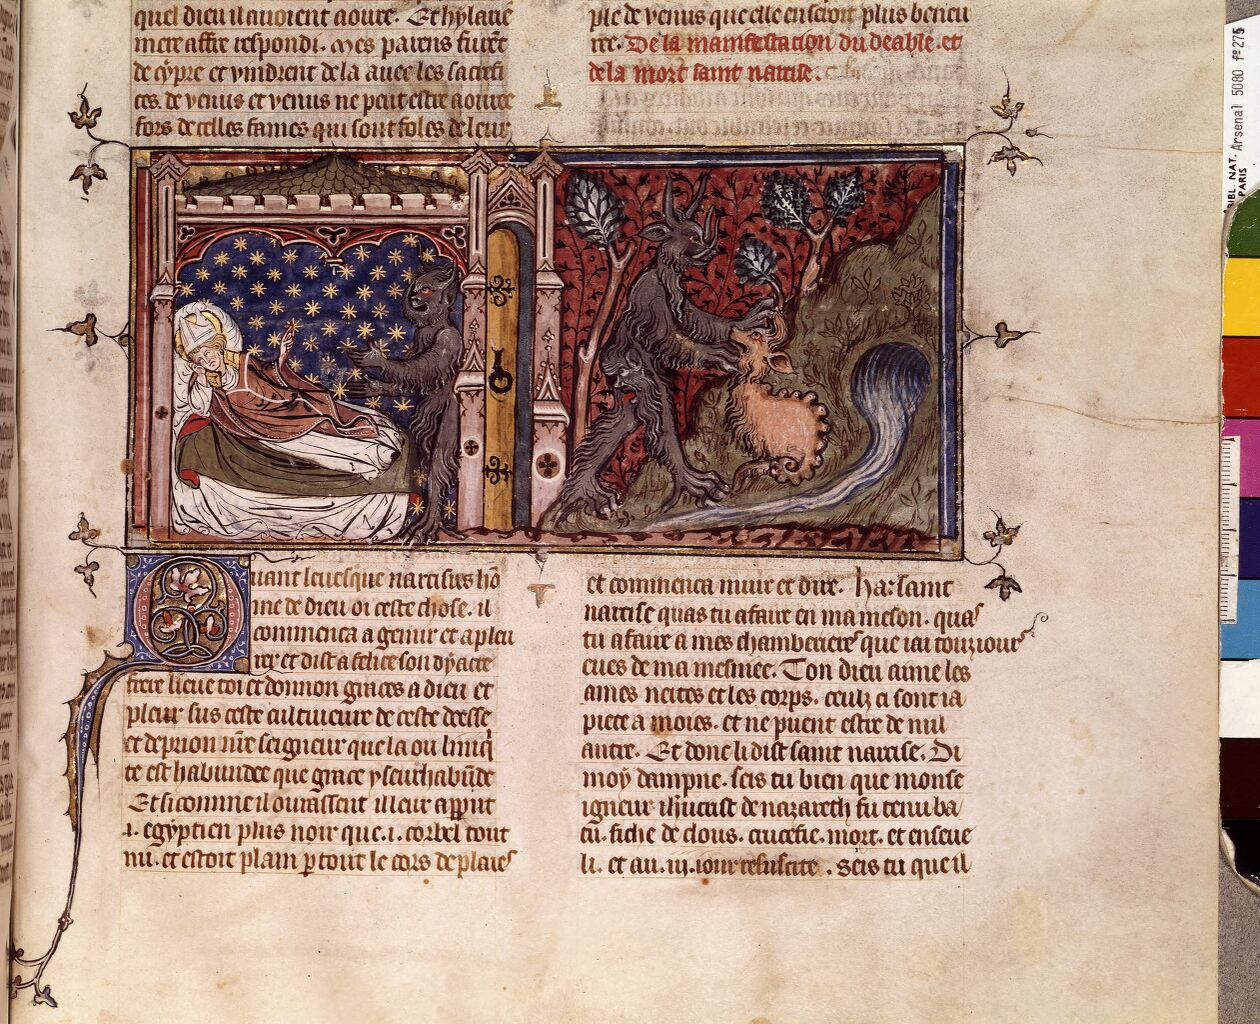 quel dieu il auoient aoure. Et hylarie
mere affre respondi. Mes parens furent
de cypre et vindrent de la auec les sacrefi
ces de venus et venus ne peut estre aouree
fors de celles fames qui sont foles de leur
ple de venus que elle en seroit plus beneu
ree. De la manifestacion du deable. et
de la mort saint narcise.
Quant leuesque narcisus ho
me de dieu oi ceste chose. il
commenca a gemir et a pleu
rer et dist a felice son dyacre
frere lieue toi et donnon graces a dieu et
pleur sus ceste cultiueure de ceste deesse
et deprion nre seigneur que la ou liniq
te est habundee que grace y seurhabunde
Et si comme il ourassent il leur apparut
.i. egyptien plus noir que .i. corbel tout
nu. et estoit plain p tout le cors de plaies
et commenca muir et dire. ha: saint
narcise quas tu a faire en ma meson. quas
tu a faire a mes chamberieres que iai touziours
eues de ma mesniee. Ton dieu aime les
ames netes et les corps. ceulz ci sont ia
piece a moies. et ne puent estre de nul
autre. Et donc li dist saint narcise. Di
moy dampne. seis tu bien que monse
igneur ihucrist de nazareth fu tenu ba
tu. fiche de clous. crucefie. mort. et enseue
li. et au .iij. iour resuscite . seis tu que il
BIBL. NAT. Arsenal 5080 fº 275
PARIS